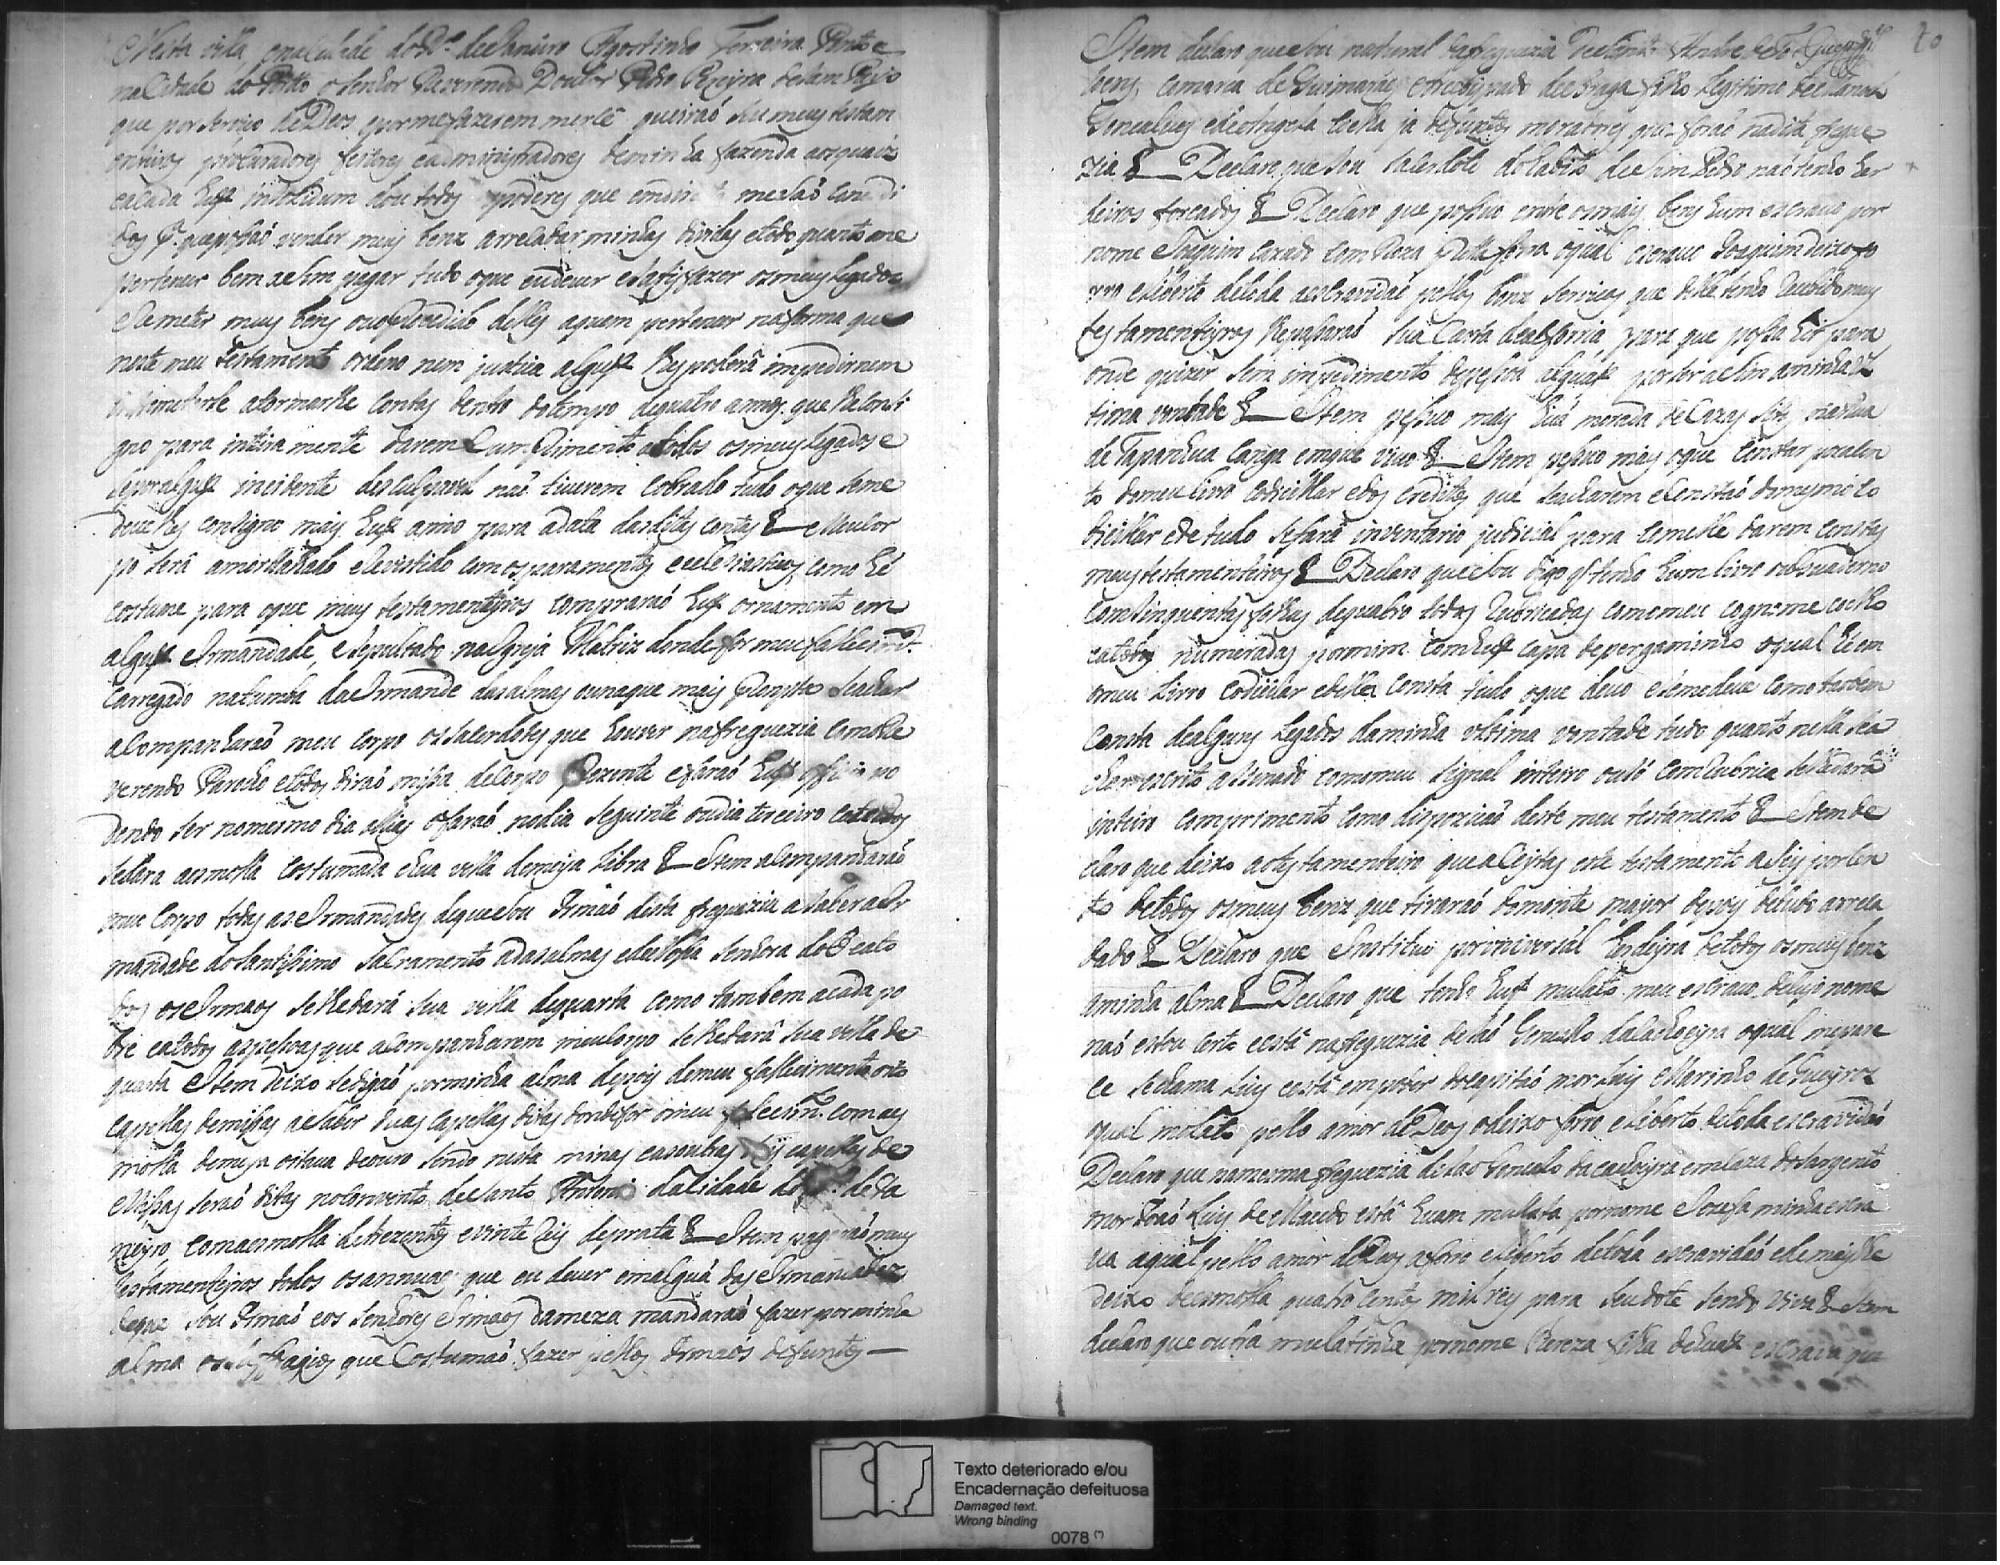 Nesta villa, e na Cidade do R.º de Janeiro Agostinho Ferreira Pinto e
na Cidade do Porto o Senhor Reverendo Doutor Pedro
que por serviço de Deos e por me fazerem merce queiraõ ser meus testam
enteiros procuradores feitores e administradores de minha fazenda aos quais e
cada hum in solidum dou todos os poderes que em dir me saõ concedi
dos p.ª que possaõ vender meus benz arrecadar minhas dividas e todo quanto me
pertencer bem asim pagar tudo o que eu dever e satisfazer os meus legados
e Remeter meus bens ou o procedido delles a quem pertencer na forma que
neste meu testamento ordeno nem justiça alguma lhes poderâ impedir nem
intrometerse a tormarlhe contas dentro do tempo de quatro annos que lhe consi
gno para inteira mente darem Cumprimento a todos os meus legados e
se por algum incidente desculpavel naõ tiverem cobrado tudo o que se me
deve lhes consigno mais hum anno para a data das ditas contas & Meu cor
po serâ amortalhado e revestido com os paramentos eccleziasticos, como hé
costume para o que meus testamenteyros compraraõ hum ornamento em
alguma Irmandade, e sepultado na Igreja Matriz donde for meu fallecimt.º
carregado na tumba da Irmande das almas ou na que mais prompta se achar
acompanharaõ meu corpo os Sacerdotes que houver na freguezia com o Re
verendo Parocho e todos diraõ missa de corpo prezente e faraõ hum officio po
dendo ser no mesmo dia o faraõ no dia seguinte ou dia terceiro e a todos
se dara a esmolla costumada e hua vella de meya libra & Item acompanharaõ
meu corpo todas as Irmandades de que sou Irmaõ desta freguezia a saber a Ir
mandade do Santissimo Sacramento a das almas e de Nossa Senhora do
dos os Irmaos se lhe dará sua vella de quarta como tambem a cada po
bre e a todas as pessoas que acompanharem meu corpo se lhe dará sua vella de
quarta Item deixo se digaõ por minha alma depois de meu fallecimento oito
capellas de missas a saber duas capellas ditas donde for o meu fallecim.to com a es
molla de meya oitava de ouro sendo nesta minas e as outras seis capellas de
Missas seraõ ditas no convento de Santo Antonio da Cidade do R.º de Ja
neyro com a esmolla de trezentos e vinte reis de prata & Item pagaraõ meus
testamenteyros todos os annuaes que eu dever em alguã das Irmandades
de que sou Irmaõ e os Senhores Irmaos da meza mandaraõ fazer por minha
alma os sufragios que costumaõ fazer pellos Irmaõs defuntos —
20
Item declaro que sou natural da freguezia de Santo Andre de
comarca de Guimarães e Arcebispado de Braga filho legitimo de Manoel
Goncalves e de Angela Coelha ja defuntos moradores que foraõ na dita fregue
zia & Declaro que sou Sacerdote do habito de Sam Pedro naõ tenho her
deiros forcados & Declaro que possuo entre os mais bens hum escravo por
nome Joaquim cazado com o qual escravo Joaquim deixo fo
rro e liberto de toda a escravidaõ pellos bons serviços que delle tenho recebido meus
testamenteyros lhe passaraõ sua Carta de alforria para que possa hir para
onde quizer sem impedimento de pessoa alguã por ser asim a minha ul
tima vontade & Item possuo mais huã morada de cazas sitas na rua
de Taparhua em que vivo & Item possuo mais o que constar por acen
to do meu livro codicillar e dos creditos que se acharem e constaõ do mesmo co
dicillar e de tudo se fará inventario judicial para com elle darem contas
meus testamenteiros & Declaro que sou digo q' tenho hum livro ou Quaderno
com sinquenta folhas de quatro todas rubricadas com o meu cognome coelho
e a todas numeradas por mim com hum capa de pergaminho o qual hé em
o meu livro codicillar e delle consta tudo o que devo e se me deve como tambem
consta de alguns legados da minha ultima vontade tudo quanto nelle se a
char escrito assinado com o meu signal inteiro ou só com rubrica se lhe dará
inteiro comprimento como dispoziçaõ deste meu testamento & Item de
claro que deixo ao testamenteiro que aceitar este testamento a seis por cen
to de todos os meus benz que tiraraõ do monte mayor depois de tudo arreca
dado & Declaro que Instituo por univerçal herdeyra de todos os meus benz
a minha alma & Declaro que tenho hum mulato meu escravo de cujo nome
naõ estou certo e está na freguezia de saõ Goncallo da Cachoeyra o qual me pare
ce se chama Luis e está em poder do Capitaõ mor Luis Marinho de
o qual molato pello amor de Deos o deixo forro e liberto de toda escravidaõ
Declaro que na mesma freguezia de saõ Goncalo da cachoeyra em caza do Sargento
mor Joaõ Luis de Macedo está huma mulata por nome Jozefa minha escra
va a qual pello amor de Deos a forro e liberto de toda escravidaõ e de mais lhe
deixo de esmolla quatro centos mil reis para seu dote sendo viva & Item
declaro que outra mulatinha por nome Thereza filha de huã escrava que
Texto deteriorado e/ou
Encadernação defeituosa
Damaged text.
Wrong binding
0078